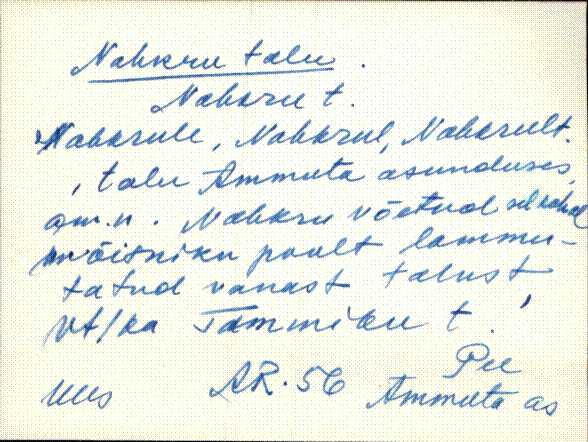 Nahkru talu.
Nahkru t.
Nahkrule, Nahkrul, Nahkrult.
, talu Ammuta asunduses,
om. n. Nahkru võetud sel kohal
mõisniku poolt lammu-
tatud vanast talust,
Vt/ka Tammiku t.
Pee
Uus AR. 56 Ammuta as